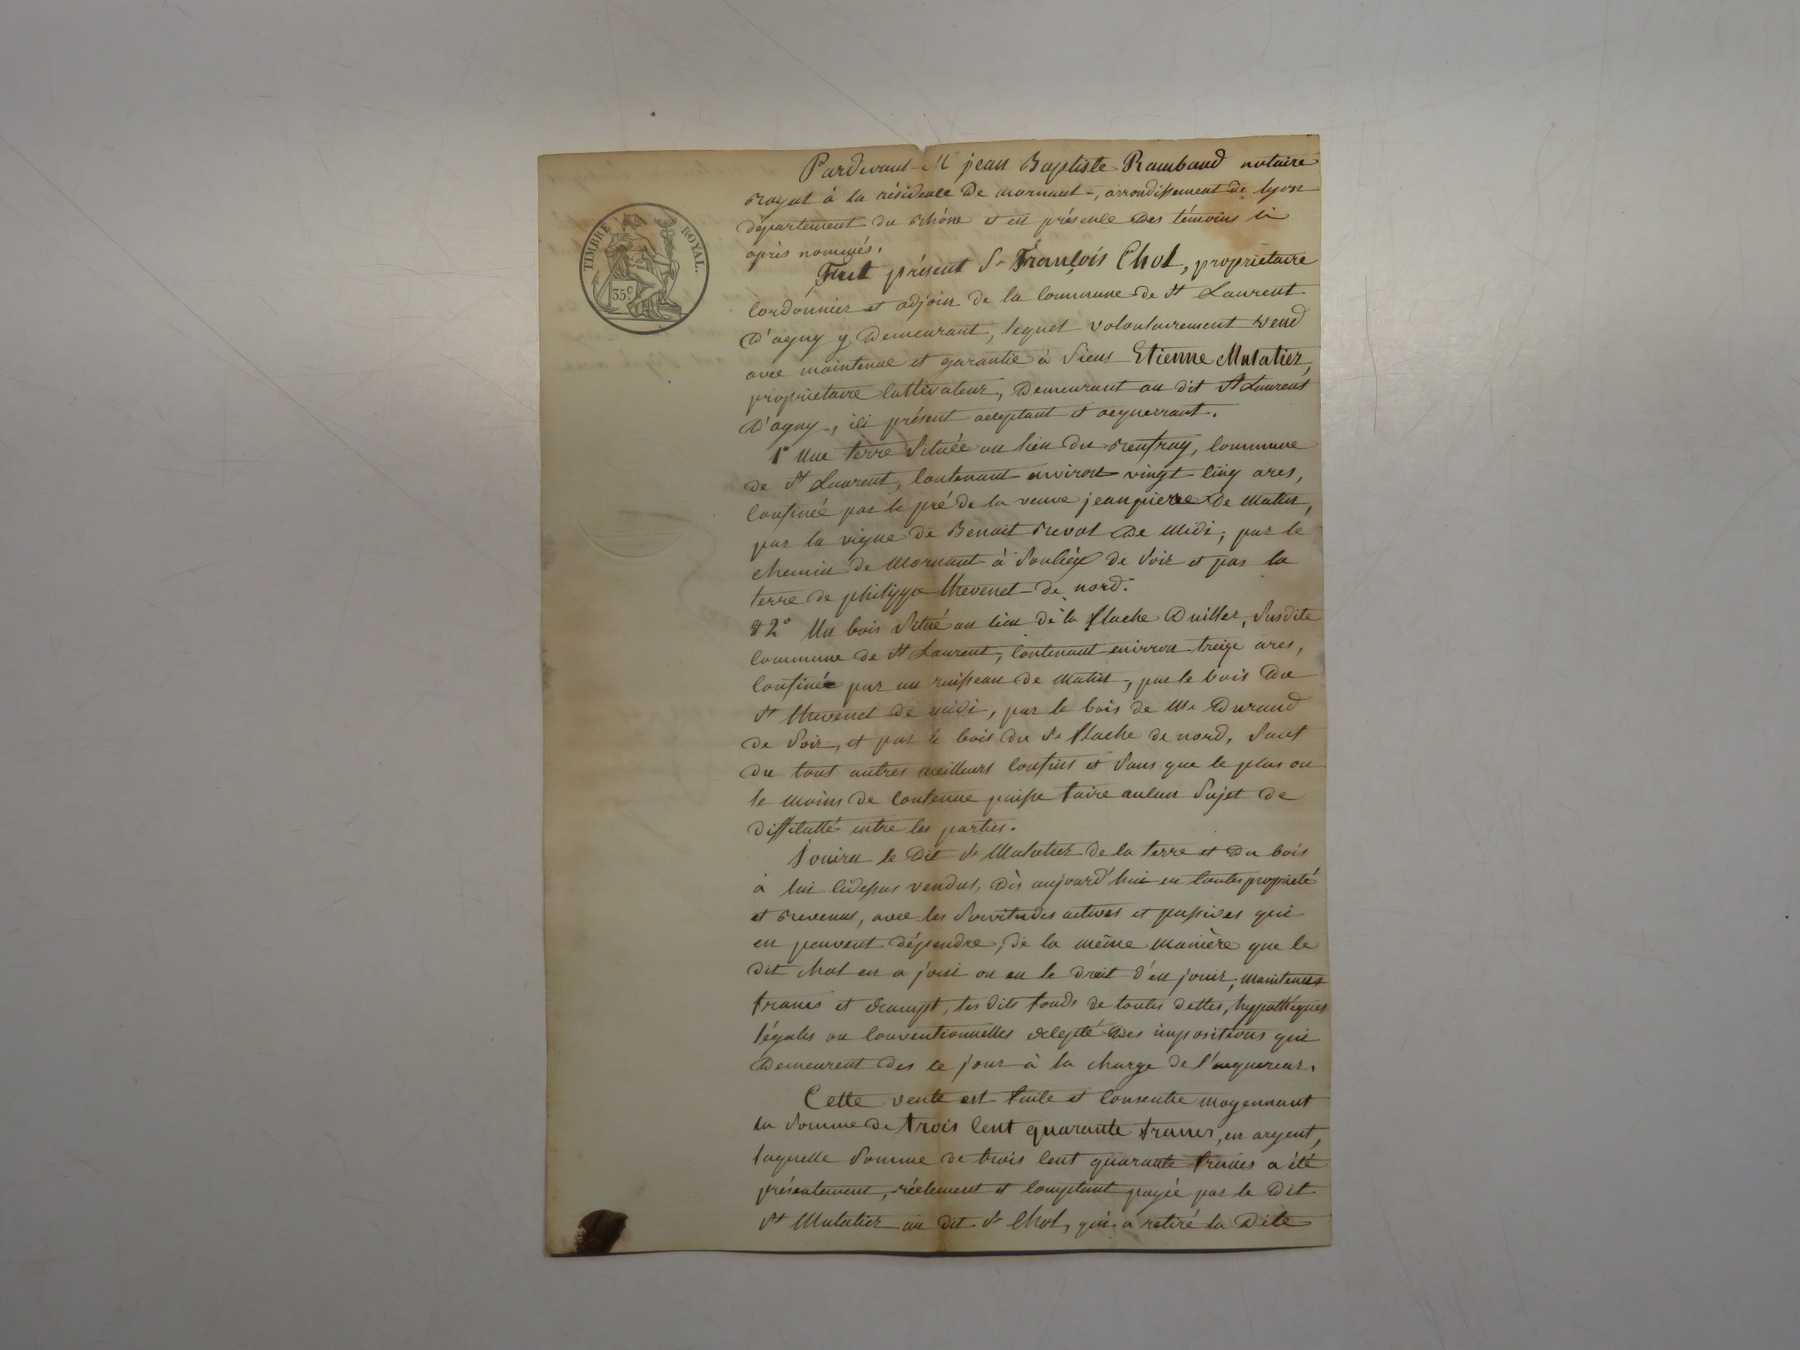 TIMBRE ROYAL.
35 c
Pardevant Me jean Baptiste Rambaud notaire
royal à la résidence de mornant, arrondissement de lyon
département du rhône et en présence des témoins ci
après nommés.
Fut présent Sr François Chol, propriétaire
cordonnier et adjoin de la commune de St Laurent
D'agny y demeurant, lequel volontairement vend
avec maintenue et garantie à Sieur Etienne Mulatier,
propriétaire cultivateur, demeurant au dit St Laurent
D'agny, ici présent acceptant et acquerrant.
1º Une terre située au lieu du, commune
de St Laurent, contenant environ vingt cinq ares,
confinée par le pré de la veuve jean pierre de matin,
par la vigne de Benoit de midi, par le
chemin de Mornant à de soir et par la
terre de philippe thevenet de nord.
& 2º Un bois situé au lieu de la flache, susdite
commune de St Laurent, contenant environ treize ares,
confinée par un ruisseau de matin, par le bois du
Sr thevenet de midi, par le bois de Mr Durand
de soir, et par le bois du Sr flache de nord, sauf
du tout autres meilleurs confins et sans que le plus ou
le moins de contenue puisse faire aucun sujet de
difficulté entre les parties.
Jouira le dit Sr Mulatier de la terre et du bois
à lui cidessus vendus, dès aujourd'hui en toute propriété
et revenus, avec les servitudes actives et passives qui
en peuvent dépendre, de la même manière que le
dit chol en a joui ou eu le droit d'en jouir, maintenus
francs et exempt, les dits fonds de toutes dettes, hypothéques
légales ou conventionnelles excepté des impositions qui
demeurent des ce jour à la charge de l'acquereur.
Cette vente est faite et consentie moyennant
la somme de trois cent quarante francs, en argent,
laquelle somme de trois cent quarante francs a été
présentement, réelement et comptant payée par le dit
Sr Mulatier au dit Sr Chol, qui a retiré la dite